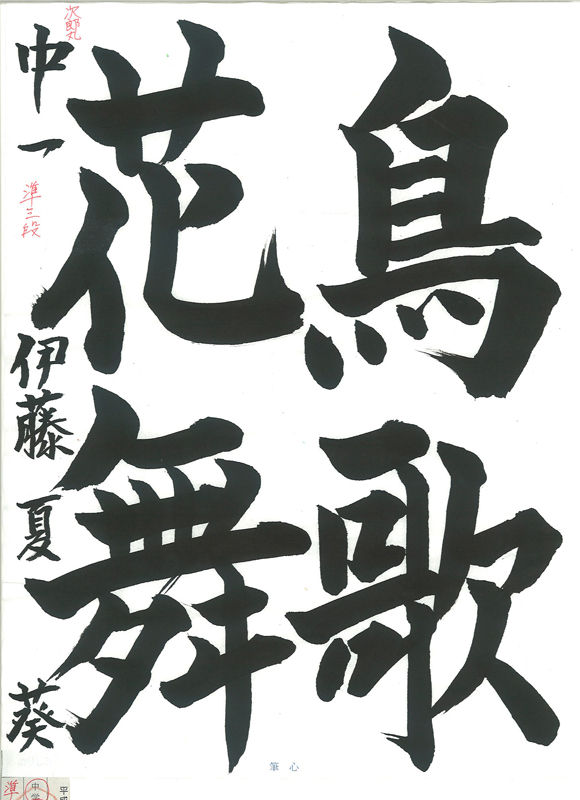 鳥歌
花舞
次郎丸
中一
準三段
伊藤夏葵
心筆
準
中学
平成